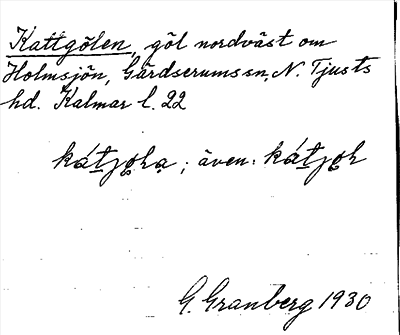 Kattgölen, göl nordväst om
Holmsjön, Gärdserums sn, N. Tjusts
hd. Kalmar l. 22
; även:
G. Granberg 1930